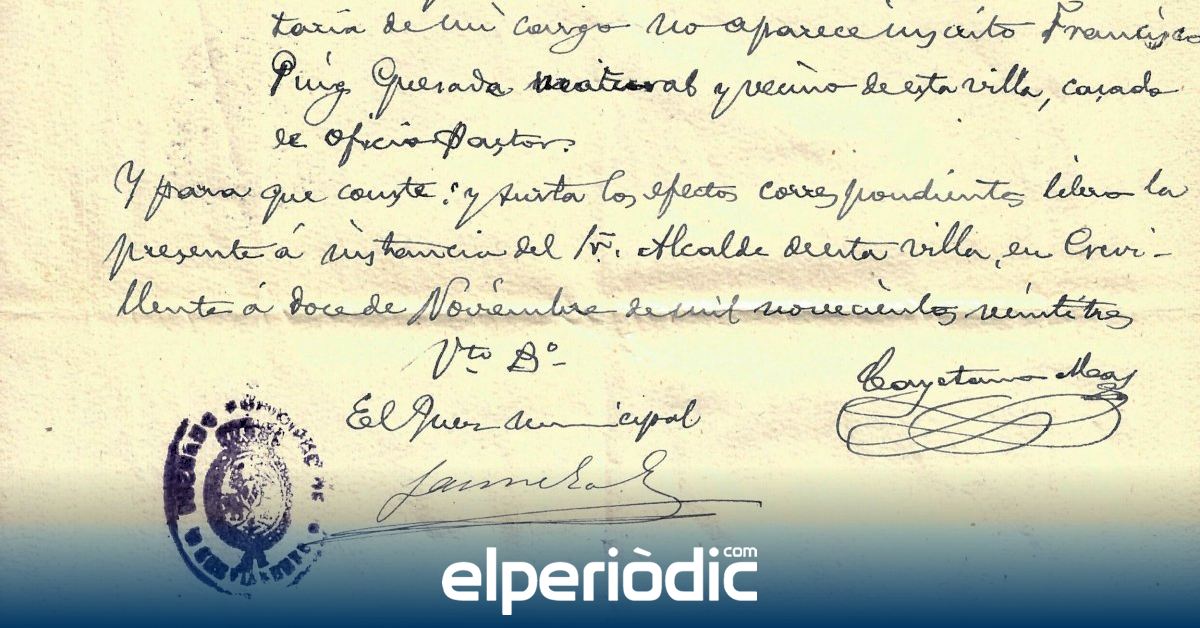 taria de mi cargo no aparece inscrito Francisco
Puig Quesada natural y vecino de esta villa, casado
de oficio Pastor.
Y para que conste; y surta los efectos correspondientes libro la
presente á instancia del Sr. Alcalde de esta villa, en Crevi-
llente á doce de Noviembre de mil novecientos veintitres
Vto Bo
El Juez municipal
Cayetano Mas
JUZGADO MUNICIPAL DE
elperiòdic.com